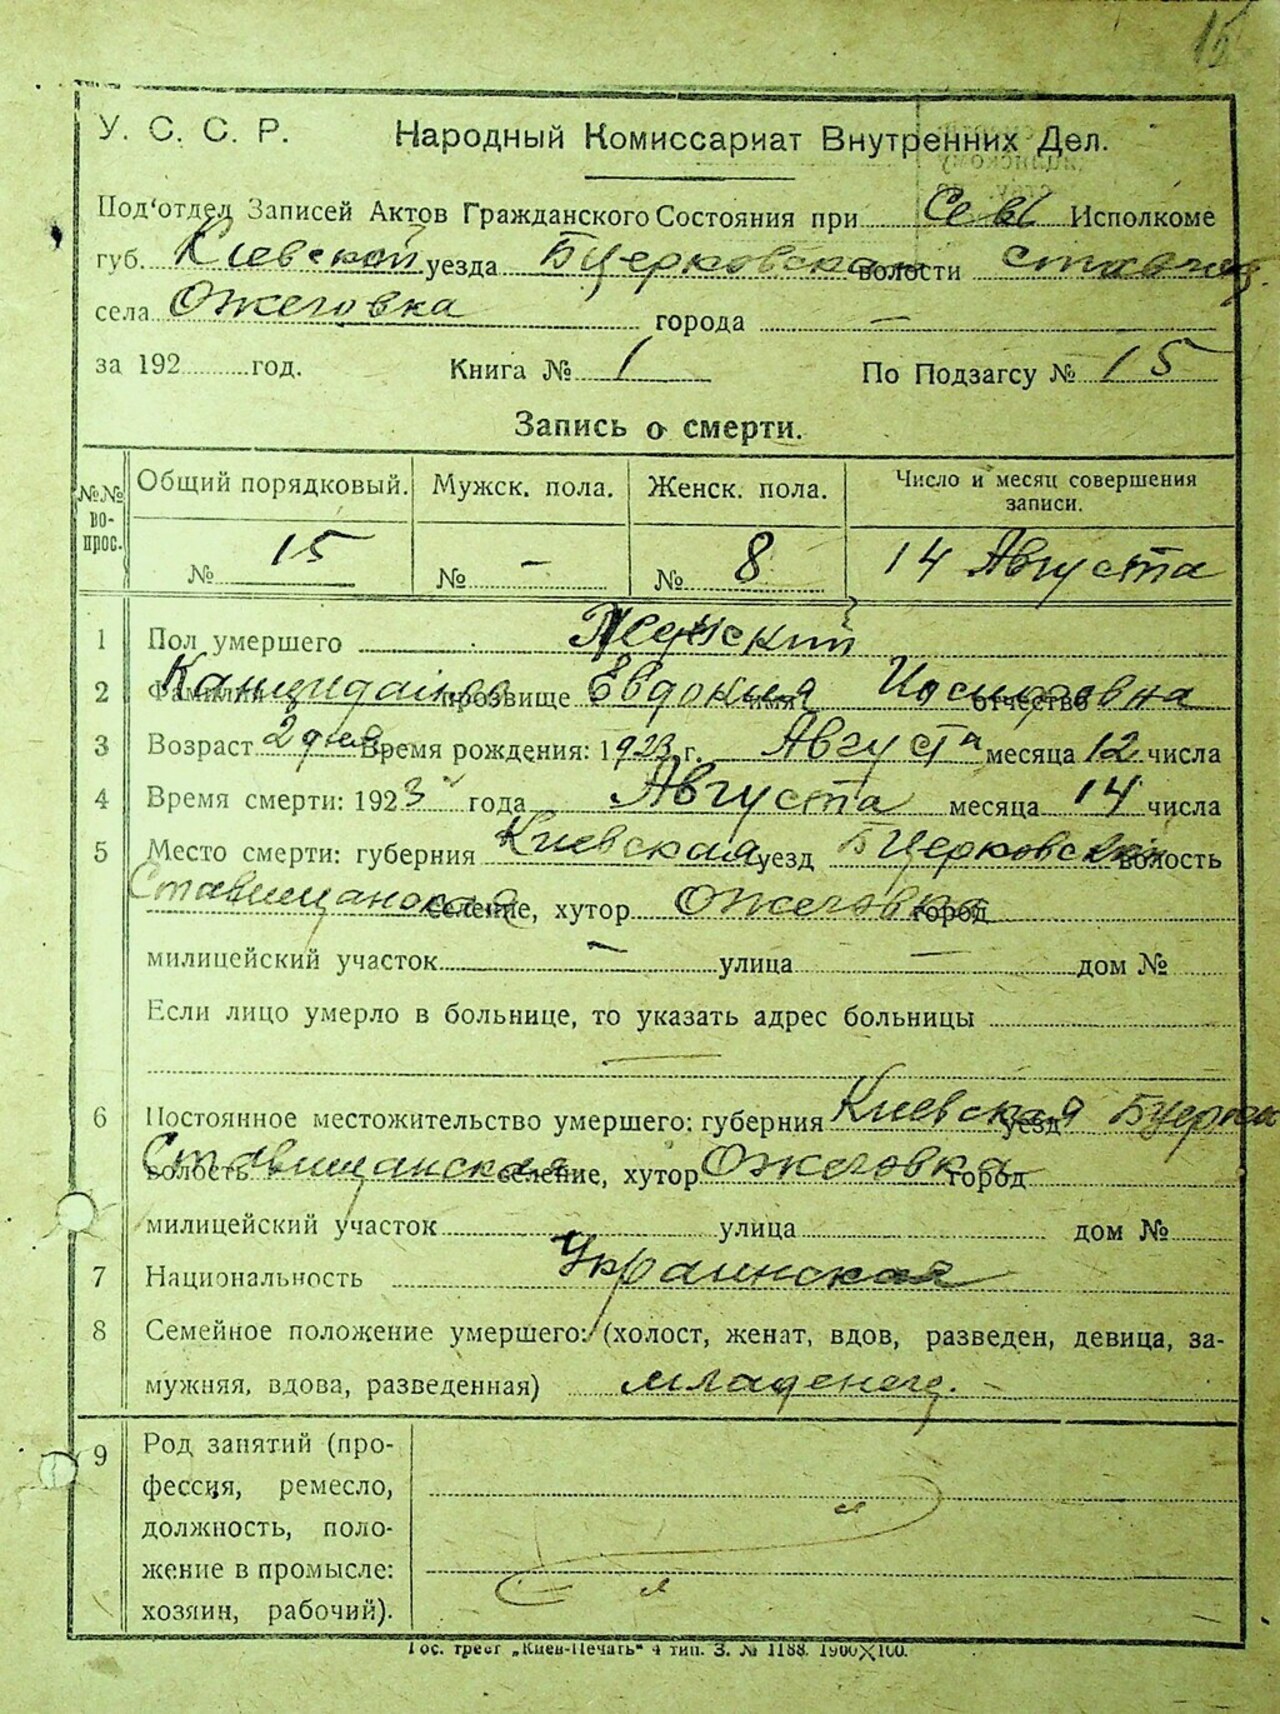 15
У. С. С. Р. Народный Комиссариат Внутренних Дел.
Под'отдел Записей Актов Гражданского Состояния при Исполкоме
губ. Киевской уезда Бцерковска волости
села Ожеговка города —
за 192 год. Книга № 1 По Подзагсу № 15
Запись о смерти.
№№ во- прос. Общий порядковый. Мужск. пола. Женск. пола. Число и месяц совершения записи.
№ 15 № - № 8 14 Августа
1 Пол умершего Женский
2 Фамилия прозвище Евдокия имя Иосифовна отчество
3 Возраст 2 дня Время рождения: 1923 г. Августа месяца 12 числа
4 Время смерти: 1923 года Августа месяца 14 числа
5 Место смерти: губерния Киевская уезд Бцерковский волость
Ставищанская селение, хутор Ожеговка город
милицейский участок — улица — дом №
Если лицо умерло в больнице, то указать адрес больницы
—
6 Постоянное местожительство умершего: губерния Киевская уезд Бцерков
волость Ставищанская селение, хутор Ожеговка город
милицейский участок улица дом №
7 Национальность Украинская
8 Семейное положение умершего: (холост, женат, вдов, разведен, девица, за-
мужняя, вдова, разведенная) младенец. -
9 Род занятий (про-
фессия, ремесло,
должность, поло-
жение в промысле:
хозяин, рабочий).
Гос. трест „Киев-Печать“ 4 тип. З. № 1188. 1900X100.